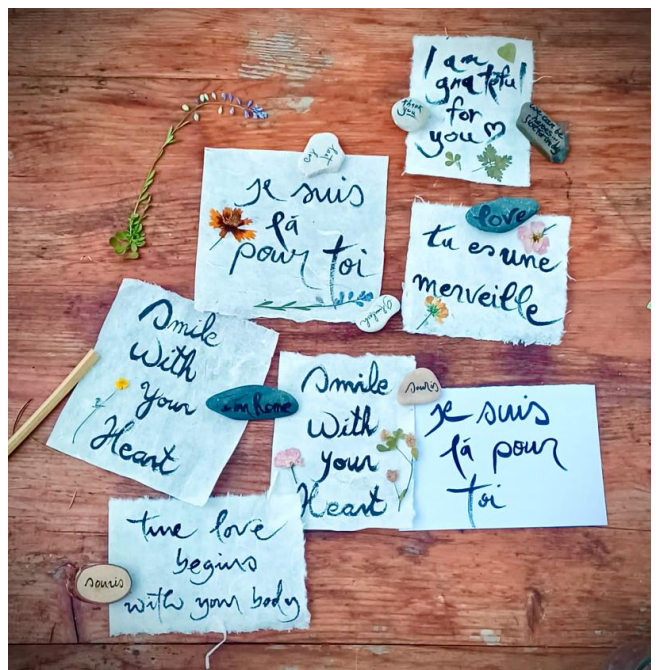 I am
grateful
for
you
thank
you
love
je suis
là
pour toi
tu es une
merveille
Smile
With
Your
Heart
I am Home
Smile
With
your
Heart
souris
je suis
là pour
toi
true love
begins
with your body
souris